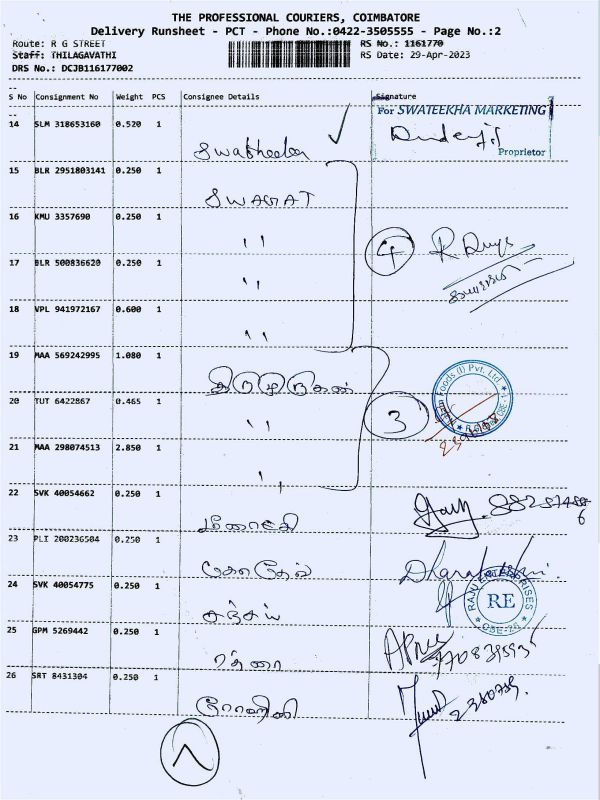 THE PROFESSIONAL COURIERS, COIMBATORE
Delivery Runsheet - PCT - Phone No.:0422-3505555 - Page No.:2
Route: R G STREET
RS No.: 1161770
Staff: THILAGAVATHI
RS Date: 29-Apr-2023
DRS No.: DCJB116177002
S No Consignment No Weight PCS Consignee Details Signature
For SWATEEKHA MARKETING
Proprietor
14 SLM 318653160 0.520 1
15 BLR 2951803141 0.250 1 SWAGAT
16 KMU 3357690 0.250 1 ''
17 BLR 500836620 0.250 1 '' 4
18 VPL 941972167 0.600 1 ''
19 MAA 569242995 1.080 1
20 TUT 6422867 0.465 1 '' 3
21 MAA 298074513 2.850 1 ''
22 SVK 40054662 0.250 1 மீனாட்சி
23 PLI 200236504 0.250 1
24 SVK 40054775 0.250 1 சஞ்சய்
RAJU ENTERPRISES
RE
25 GPM 5269442 0.250 1
26 SRT 8431304 0.250 1